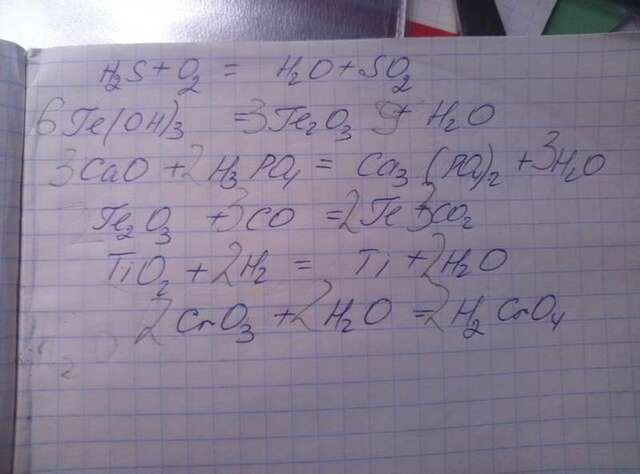 H₂S + O₂ = H₂O + SO₂
6Fe(OH)₃ = 3Fe₂O₃ + 9H₂O
3CaO + 2H₃PO₄ = Ca₃(PO₄)₂ + 3H₂O
Fe₂O₃ + 3CO = 2Fe + 3CO₂
TiO₂ + 2H₂ = Ti + 2H₂O
2CrO₃ + 2H₂O = 2H₂CrO₄